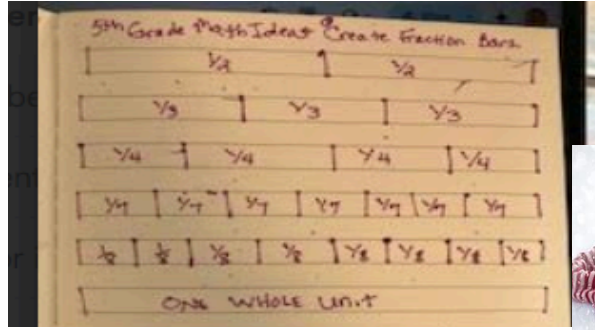 5th Grade Math Ideas Create Fraction Bars
1/2 1/2
1/3 1/3 1/3
1/4 1/4 1/4 1/4
1/7 1/7 1/7 1/7 1/7 1/7 1/7
1/8 1/8 1/8 1/8 1/8 1/8 1/8 1/8
ONE WHOLE Unit